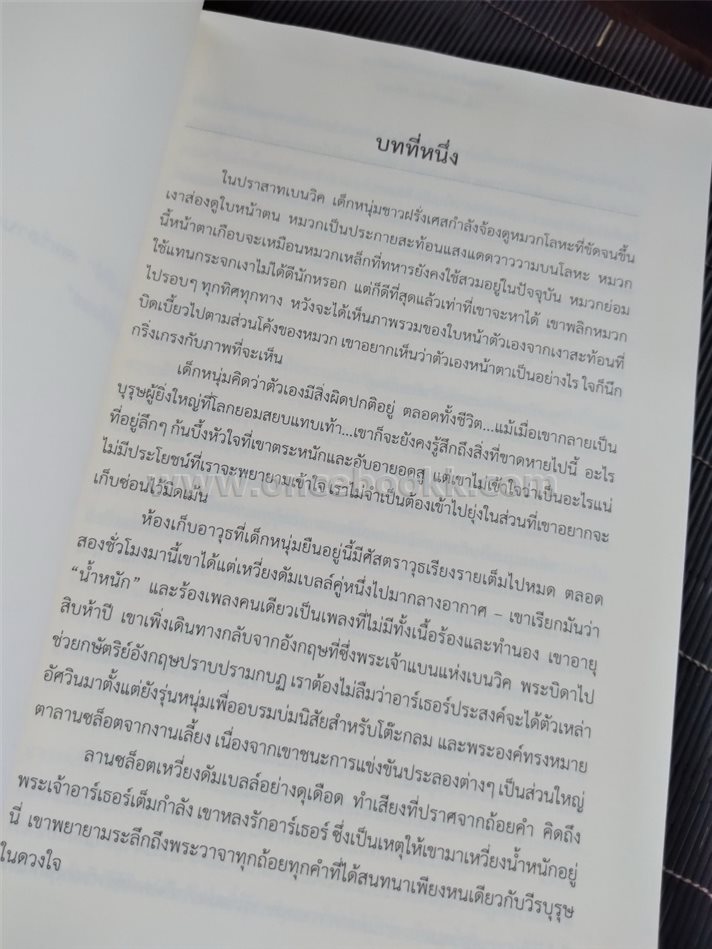 บทที่หนึ่ง
ในปราสาทเบนวิค เด็กหนุ่มชาวฝรั่งเศสกำลังจ้องดูหมวกโลหะที่ขัดจนขึ้น
เงาส่องดูใบหน้าตน หมวกเป็นประกายสะท้อนแสงแดดวาววามบนโลหะ หมวก
นี้หน้าตาเกือบจะเหมือนหมวกเหล็กที่ทหารยังคงใช้สวมอยู่ในปัจจุบัน หมวกย่อม
ใช้แทนกระจกเงาไม่ได้ดีนักหรอก แต่ก็ดีที่สุดแล้วเท่าที่เขาจะหาได้ เขาพลิกหมวก
ไปรอบๆ ทุกทิศทุกทาง หวังจะได้เห็นภาพรวมของใบหน้าตัวเองจากเงาสะท้อนที่
บิดเบี้ยวไปตามส่วนโค้งของหมวก เขาอยากเห็นว่าตัวเองหน้าตาเป็นอย่างไร ใจก็นึก
กริ่งเกรงกับภาพที่จะเห็น
เด็กหนุ่มคิดว่าตัวเองมีสิ่งผิดปกติอยู่ ตลอดทั้งชีวิต...แม้เมื่อเขากลายเป็น
บุรุษผู้ยิ่งใหญ่ที่โลกยอมสยบแทบเท้า...เขาก็จะยังคงรู้สึกถึงสิ่งที่ขาดหายไปนี้ อะไร
ที่อยู่ลึกๆ ก้นบึ้งหัวใจที่เขาตระหนักและอับอายอดสู แต่เขาไม่เข้าใจว่าเป็นอะไรแน่
ไม่มีประโยชน์ที่เราจะพยายามเข้าใจ เราไม่จำเป็นต้องเข้าไปยุ่งในส่วนที่เขาอยากจะ
เก็บซ่อนไว้มิดเม้น
www.oncebookk.com
ห้องเก็บอาวุธที่เด็กหนุ่มยืนอยู่นี้มีศัสตราวุธเรียงรายเต็มไปหมด ตลอด
สองชั่วโมงมานี้เขาได้แต่เหวี่ยงดัมเบลล์คู่หนึ่งไปมากลางอากาศ – เขาเรียกมันว่า
“น้ำหนัก” และร้องเพลงคนเดียวเป็นเพลงที่ไม่มีทั้งเนื้อร้องและทำนอง เขาอายุ
สิบห้าปี เขาเพิ่งเดินทางกลับจากอังกฤษที่ซึ่งพระเจ้าแบนแห่งเบนวิค พระบิดาไป
ช่วยกษัตริย์อังกฤษปราบปรามกบฏ เราต้องไม่ลืมว่าอาร์เธอร์ประสงค์จะได้ตัวเหล่า
อัศวินมาตั้งแต่ยังรุ่นหนุ่มเพื่ออบรมบ่มนิสัยสำหรับโต๊ะกลม และพระองค์ทรงหมาย
ตาลานซล็อตจากงานเลี้ยง เนื่องจากเขาชนะการแข่งขันประลองต่างๆ เป็นส่วนใหญ่
ลานซล็อตเหวี่ยงดัมเบลล์อย่างดุเดือด ทำเสียงที่ปราศจากถ้อยคำ คิดถึง
พระเจ้าอาร์เธอร์เต็มกำลัง เขาหลงรักอาร์เธอร์ ซึ่งเป็นเหตุให้เขามาเหวี่ยงน้ำหนักอยู่
นี่ เขาพยายามระลึกถึงพระวาจาทุกถ้อยทุกคำที่ได้สนทนาเพียงหนเดียวกับวีรบุรุษ
ในดวงใจ